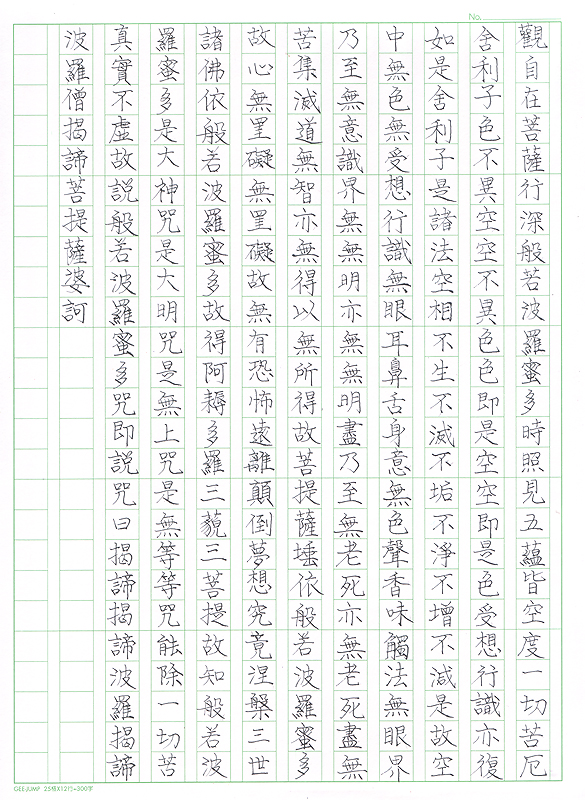 No.
觀自在菩薩行深般若波羅蜜多時照見五蘊皆空度一切苦厄
舍利子色不異空空不異色色即是空空即是色受想行識亦復
如是舍利子是諸法空相不生不滅不垢不淨不增不減是故空
中無色無受想行識無眼耳鼻舌身意無色聲香味觸法無眼界
乃至無意識界無無明亦無無明盡乃至無老死亦無老死盡無
苦集滅道無智亦無得以無所得故菩提薩埵依般若波羅蜜多
故心無罣礙無罣礙故無有恐怖遠離顛倒夢想究竟涅槃三世
諸佛依般若波羅蜜多故得阿耨多羅三藐三菩提故知般若波
羅蜜多是大神咒是大明咒是無上咒是無等等咒能除一切苦
真實不虛故說般若波羅蜜多咒即說咒曰揭諦揭諦波羅揭諦
波羅僧揭諦菩提薩婆訶
GEE-JUMP 25格X12行=300字